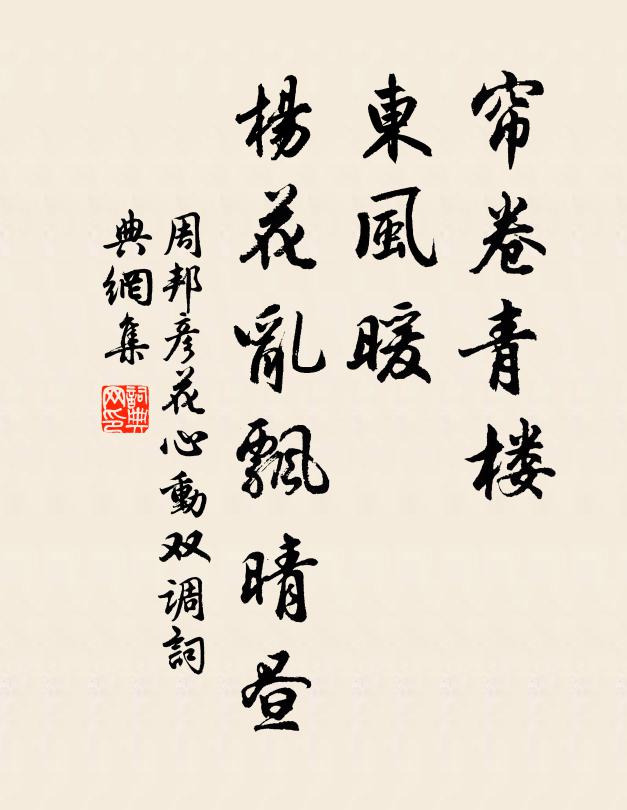 帘卷青楼
東風暖
楊花亂飄晴昼
周邦彦花心動双调詞
典網集
詞典
网印